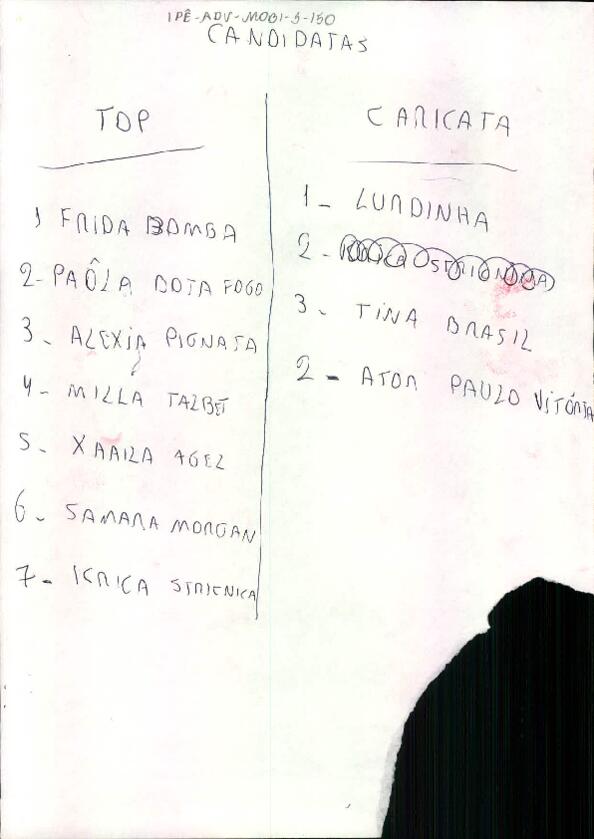 IPÊ-ADV-MOBI-5-150
CANDIDATAS
TOP
1 FRIDA BOMBA
2-PAÔLA BOTA FOGO
3- ALEXIA PIGNATA
4- MILLA TALBET
5- XAAILA AGEL
6- SAMARA MORGAN
7- IKRICA STRIENICA
CARICATA
1- LURDINHA
2-
3- TINA BRASIL
2- ATOR PAULO VITÓRIA